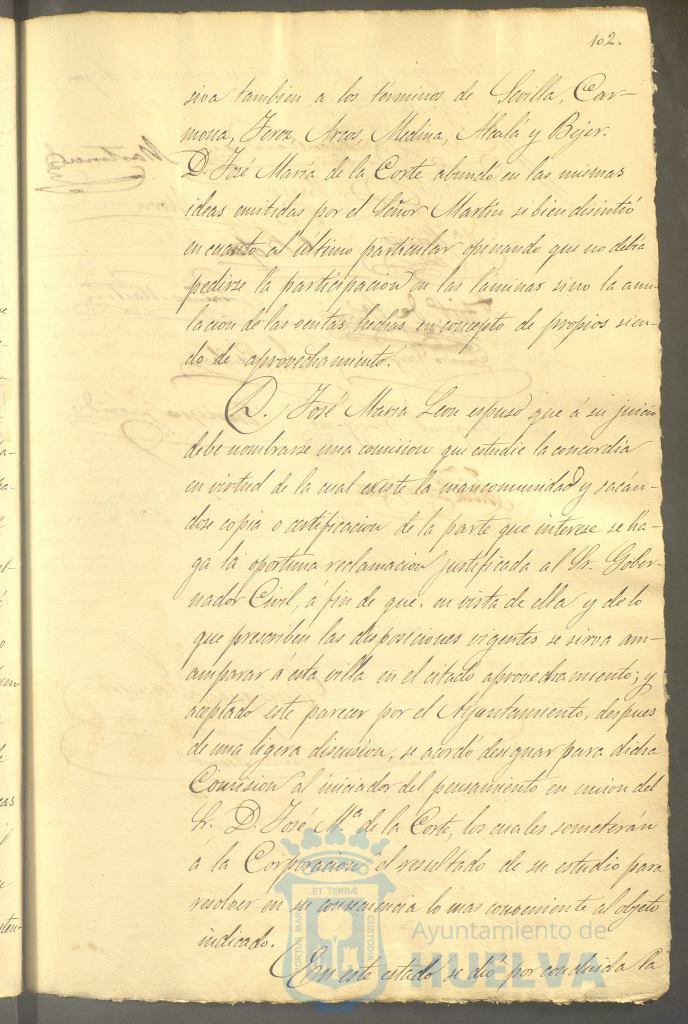 102.
siva tambien a los términos de Sevilla, Car-
mona, Jerez, Arcos, Medina, Alcalá y Bejer.
D. José María de la Corte abundó en las mismas
ideas emitidas por el Señor Martin si bien disintió
en cuanto al último particular opinando que no debia
pedirse la participacion en las láminas sino la anu-
lacion de las ventas hechas en concepto de propios sien-
do de aprovechamiento.
D. José Maria Leon espuso que á su juicio
debe nombrarse una comision que estudie la concordia
en virtud de la cual existe la mancomunidad y sacán-
dose copia o certificacion de la parte que interese se ha-
ga la oportuna reclamacion justificada al Sr. Gober-
nador Civil, á fin de que en vista de ella y de lo
que prescriben las disposiciones vigentes se sirva am-
amparar á esta villa en el citado aprovechamiento; y
aceptado este parecer por el Ayuntamiento, despues
de una ligera discusion, se acordó designar para dicha
Comision al iniciador del pensamiento en union del
Sr. D. José M.ª de la Corte, los cuales someterán
á la Corporacion el resultado de su estudio para
resolver en su consecuencia lo mas conveniente al objeto
indicado.
En este estado se dió por concluida la
ET TERRÆ
PORTUS MARIS
CUSTODIA
Ayuntamiento de
HUELVA